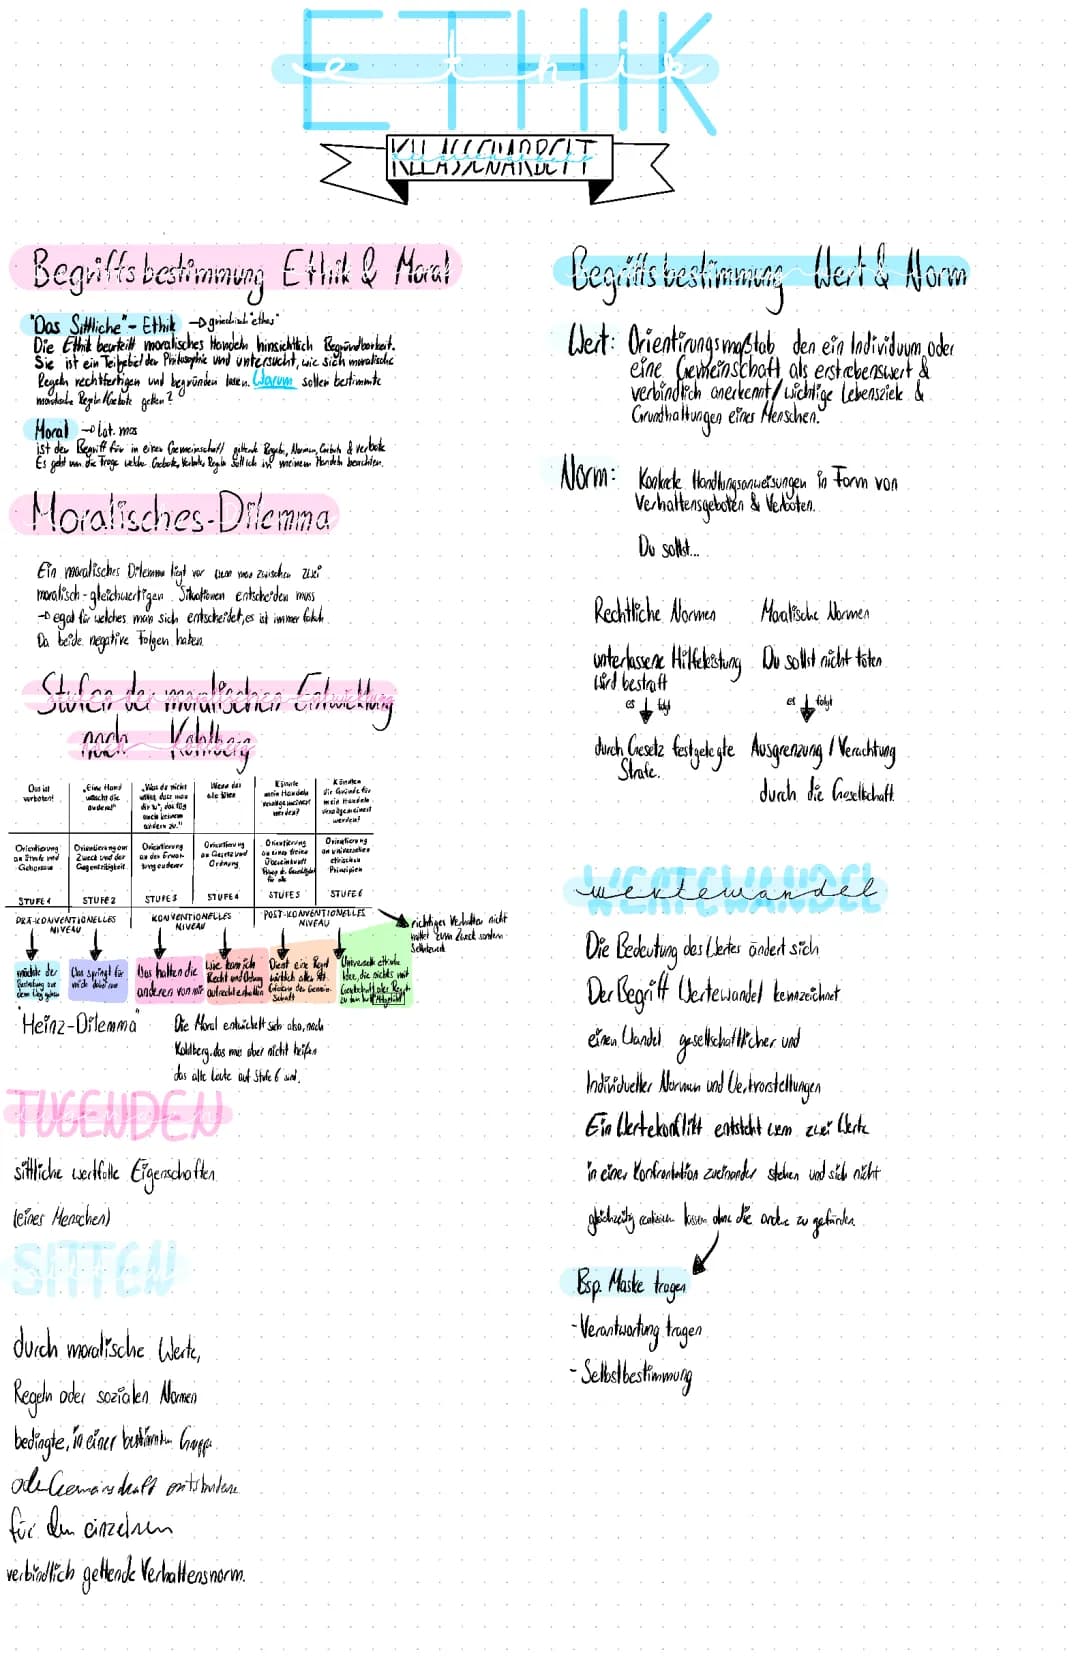 ETHIK
ethik
KLLASSENARBEIT
Begriffsbestimmung Ethik & Moral
"Das Sittliche" - Ethik → griechisch "ethos"
Die Ethik beurteilt moralisches Handeln hinsichtlich Begründbarkeit.
Sie ist ein Teilgebiet der Philosophie und untersucht, wie sich moralische
Regeln rechtfertigen und begründen lassen. Warum sollen bestimmte
moralische Regeln/Gebote gelten?
Moral → Lat. mos
ist der Begriff für in einer Gemeinschaft geltende Regeln, Normen, Gebote & Verbote
Es geht um die Frage welche Gebote, Verbote, Regeln sollt ich in meinem Handeln beachten.
Moralisches-Dilemma
Ein moralisches Dilemma liegt vor wenn man zwischen zwei
moralisch-gleichwertigen Situationen entscheiden muss
→ egal für welches man sich entscheidet, es ist immer falsch
Da beide negative Folgen haben.
Stufen der moralischen Entwicklung
nach Kohlberg
Das ist verboten!
"Eine Hand wäscht die andere!"
"Was du nicht willst, dass man dir tu', das füg auch keinem andern zu."
Wenn das alle täten
Könnte mein Handeln verallgemeinert werden?
Könnten die Gründe für mein Handeln verallgemeinert werden?
Orientierung an Strafe und Gehorsam
Orientierung am Zweck und der Gegenseitigkeit
Orientierung an den Erwartungen anderer
Orientierung an Gesetz und Ordnung
Orientierung an einer freien Übereinkunft
für alle
Orientierung an universellen ethischen Prinzipien
STUFE 1
STUFE 2
STUFE 3
STUFE 4
STUFE 5
STUFE 6
PRÄ-KONVENTIONELLES NIVEAU
KONVENTIONELLES NIVEAU
POST-KONVENTIONELLES NIVEAU
richtiges Verhalten nicht
mittel zum Zweck sondern
Selbstzweck
möchte der
Bestrafung aus
dem Weg gehen
Was springt für
mich dabei raus
Was halten die
anderen von mir
Wie kann ich
Recht und Ordnung
aufrechterhalten
Dient eine Regel
wirklich allen
der Gemein-
schaft
Universelle ethische
Idee, die nichts mit
Gesellschaft oder Regeln
zu tun hat
"Heinz-Dilemma"
Die Moral entwickelt sich also, nach
Kohlberg, das muss aber nicht heißen
das alle Leute auf Stufe 6 sind.
TUGENDEN
tugenden
sittliche wertfolle Eigenschaften
(eines Menschen)
SITTEN
durch moralische Werte,
Regeln oder sozialen Normen
bedingte, in einer bestimmten Gruppe
oder Gemeinschaft entstandene
für den einzelnen
verbindlich geltende Verhaltensnorm.
Begriffsbestimmung Wert & Norm
Wert: Orientirungsmaßstab den ein Individuum oder
eine Gemeinschaft als erstrebenswert &
verbindlich anerkennt / wichtige Lebensziele &
Grundhaltungen eines Menschen.
Norm: Konkrete Handlungsanweisungen in Form von
Verhaltensgeboten & Verboten.
Du sollst...
Rechtliche Normen
unterlassene Hilfeleistung
wird bestraft
es folgt
durch Gesetz festgelegte
Strafe.
Moralische Normen
Du sollst nicht töten
es folgt
Ausgrenzung / Verachtung
durch die Gesellschaft.
WERTEWANDEL
wertewandel
Die Bedeutung des Wertes ändert sich
Der Begriff Wertewandel kennzeichnet
einen Wandel gesellschaftlicher und
Individueller Normen und Wertvorstellungen
Ein Wertekonflikt entsteht wenn zwei Werte
in einer Konfrontation zueinander stehen und sich nicht
gleichzeitig realisieren lassen ohne die andere zu gefärden.
Bsp. Maske tragen
-Verantwortung tragen
-Selbstbestimmung